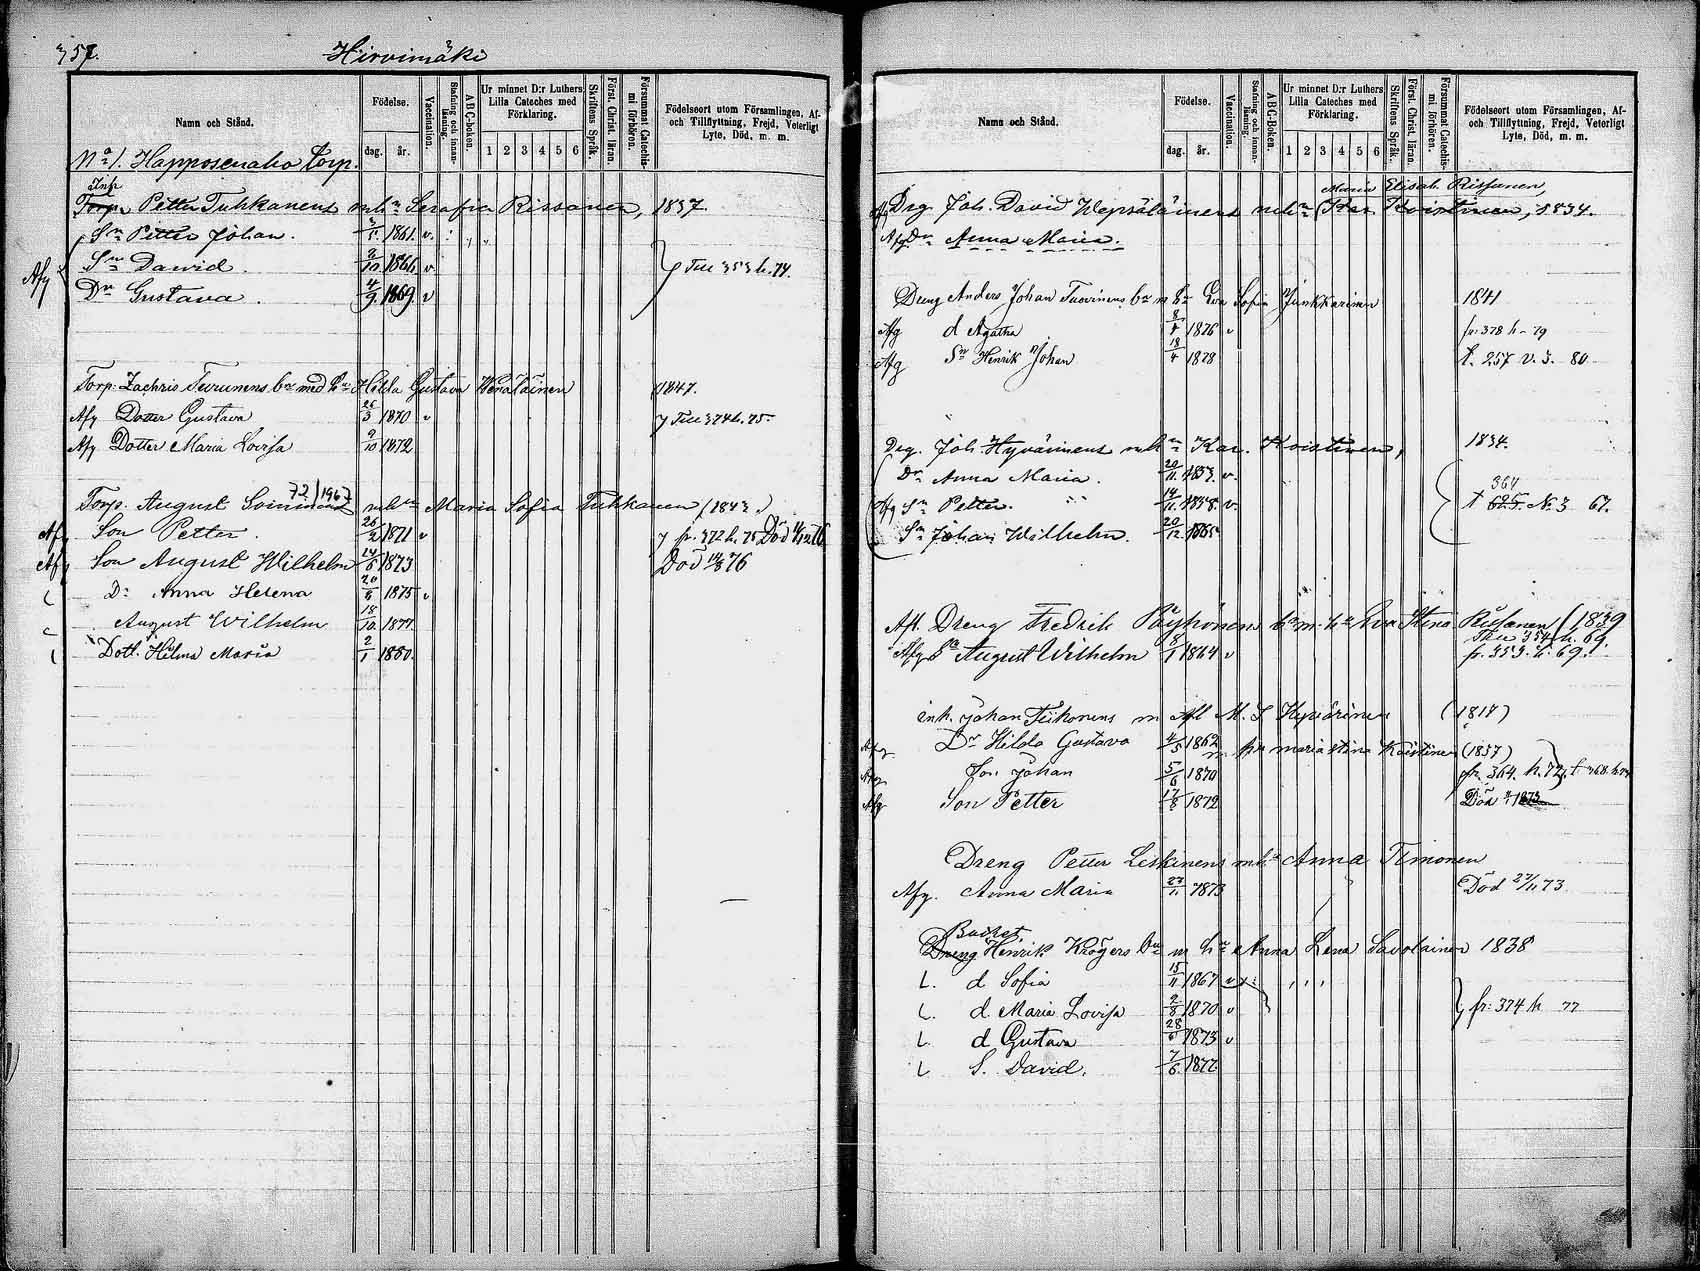 357.
Hirvimäki
Namn och Stånd.
Födelse.
dag. år.
Vaccination.
Stafning och innanläsning.
ABC-boken.
Ur minnet D:r Luthers Lilla Cateches med Förklaring.
1 2 3 4 5 6
Skriftens Språk.
Först. Christ. läran.
Försummat Catechismi förhören.
Födelseort utom Församlingen, Af- och Tillflyttning, Frejd, Veterligt Lyte, Död, m. m.
No 1. Happosenaho Torp.
Inh
Torp. Petter Tuhkanens m hn Serafia Rissanen, 1837.
Sn Petter Johan. 1861. v.
Afg Sn Dawid. 2/10 1866 v Till 353 h. 74.
Dr Gustava. 4/9. 1869. v
Torp: Zachris Teirunens br med hn Hilda Gustava Venäläinen 1847.
Afg Dotter Gustava 26/3 1870 v Till 374 h. 75.
Afg Dotter Maria Lovisa 9/10 1872
Torp. August m hn Maria Sofia Tuhkanen (1843.)
Afg Son Petter. 26/2 1871 v fr. 372 h. 75 Död
Afg Son August Wilhelm 14/6 1873 Död 14/8 76
Dr Anna Helena 20/8 1875 v
August Wilhelm 18/10. 1877.
Dott. Hilma Maria 2/1 1880.
Namn och Stånd.
Födelse.
dag. år.
Vaccination.
Stafning och innanläsning.
ABC-boken.
Ur minnet D:r Luthers Lilla Cateches med Förklaring.
1 2 3 4 5 6
Skriftens Språk.
Först. Christ. läran.
Försummat Catechismi förhören.
Födelseort utom Församlingen, Af- och Tillflyttning, Frejd, Veterligt Lyte, Död, m. m.
Maria Elisab. Rissanen,
Afg Drg Joh. David Wepsäläinens m hn Kar. Koistinen, 1834.
Afg Dr Anna Maria.
Dreng Anders Johan Tuovinens br m hn Eva Sofia Junkkarinen 1841
Afg d Agatha 8/4 1876 v fr. 378 h - 79
Afg Sn Henrik Johan 18/4 1878 t. 257 v. 3. 80
Drg. Joh. Hyvärinens m hn Kar. Koistinen, 1834.
Dr Anna Maria. 20/11. 1857. v.
364
Afg Sn Petter. 14/11. 1858. v. t No 3 67.
Sn Johan Wilhelm. 20/12. 1865
Afl. Dreng Fredrik Pöyhönen br m. hn Eva Stina Rissanen (1839
Till 354 h. 69.
Afg Sn August Wilhelm 8/1 1864 v fr. 353. h. 69.
inh. Johan Tiihonens m Afl M. S Hyvärinen (1814)
Afg Dr Hilda Gustava 4/5 1862 m hn maria stina Koistinen (1837)
Afg Son Johan 5/6 1870 fr. 364. h. 72. t 368. h.
Afg Son Petter 17/8 1872 Död 1873
Dreng Petter Leskinens m hn Anna Timonen
Afg. Anna Maria 23/11 1873 Död 27/11 73
Dreng Henrik Krögers br m hn Anna Lena Savolainen 1838
L. d Sofia 15/11 1867 v
L. d. Maria Lovisa 2/8 1870 v fr: 374 h 77
L. d Gustava 28/6 1873 v
L S. David. 7/6. 1877